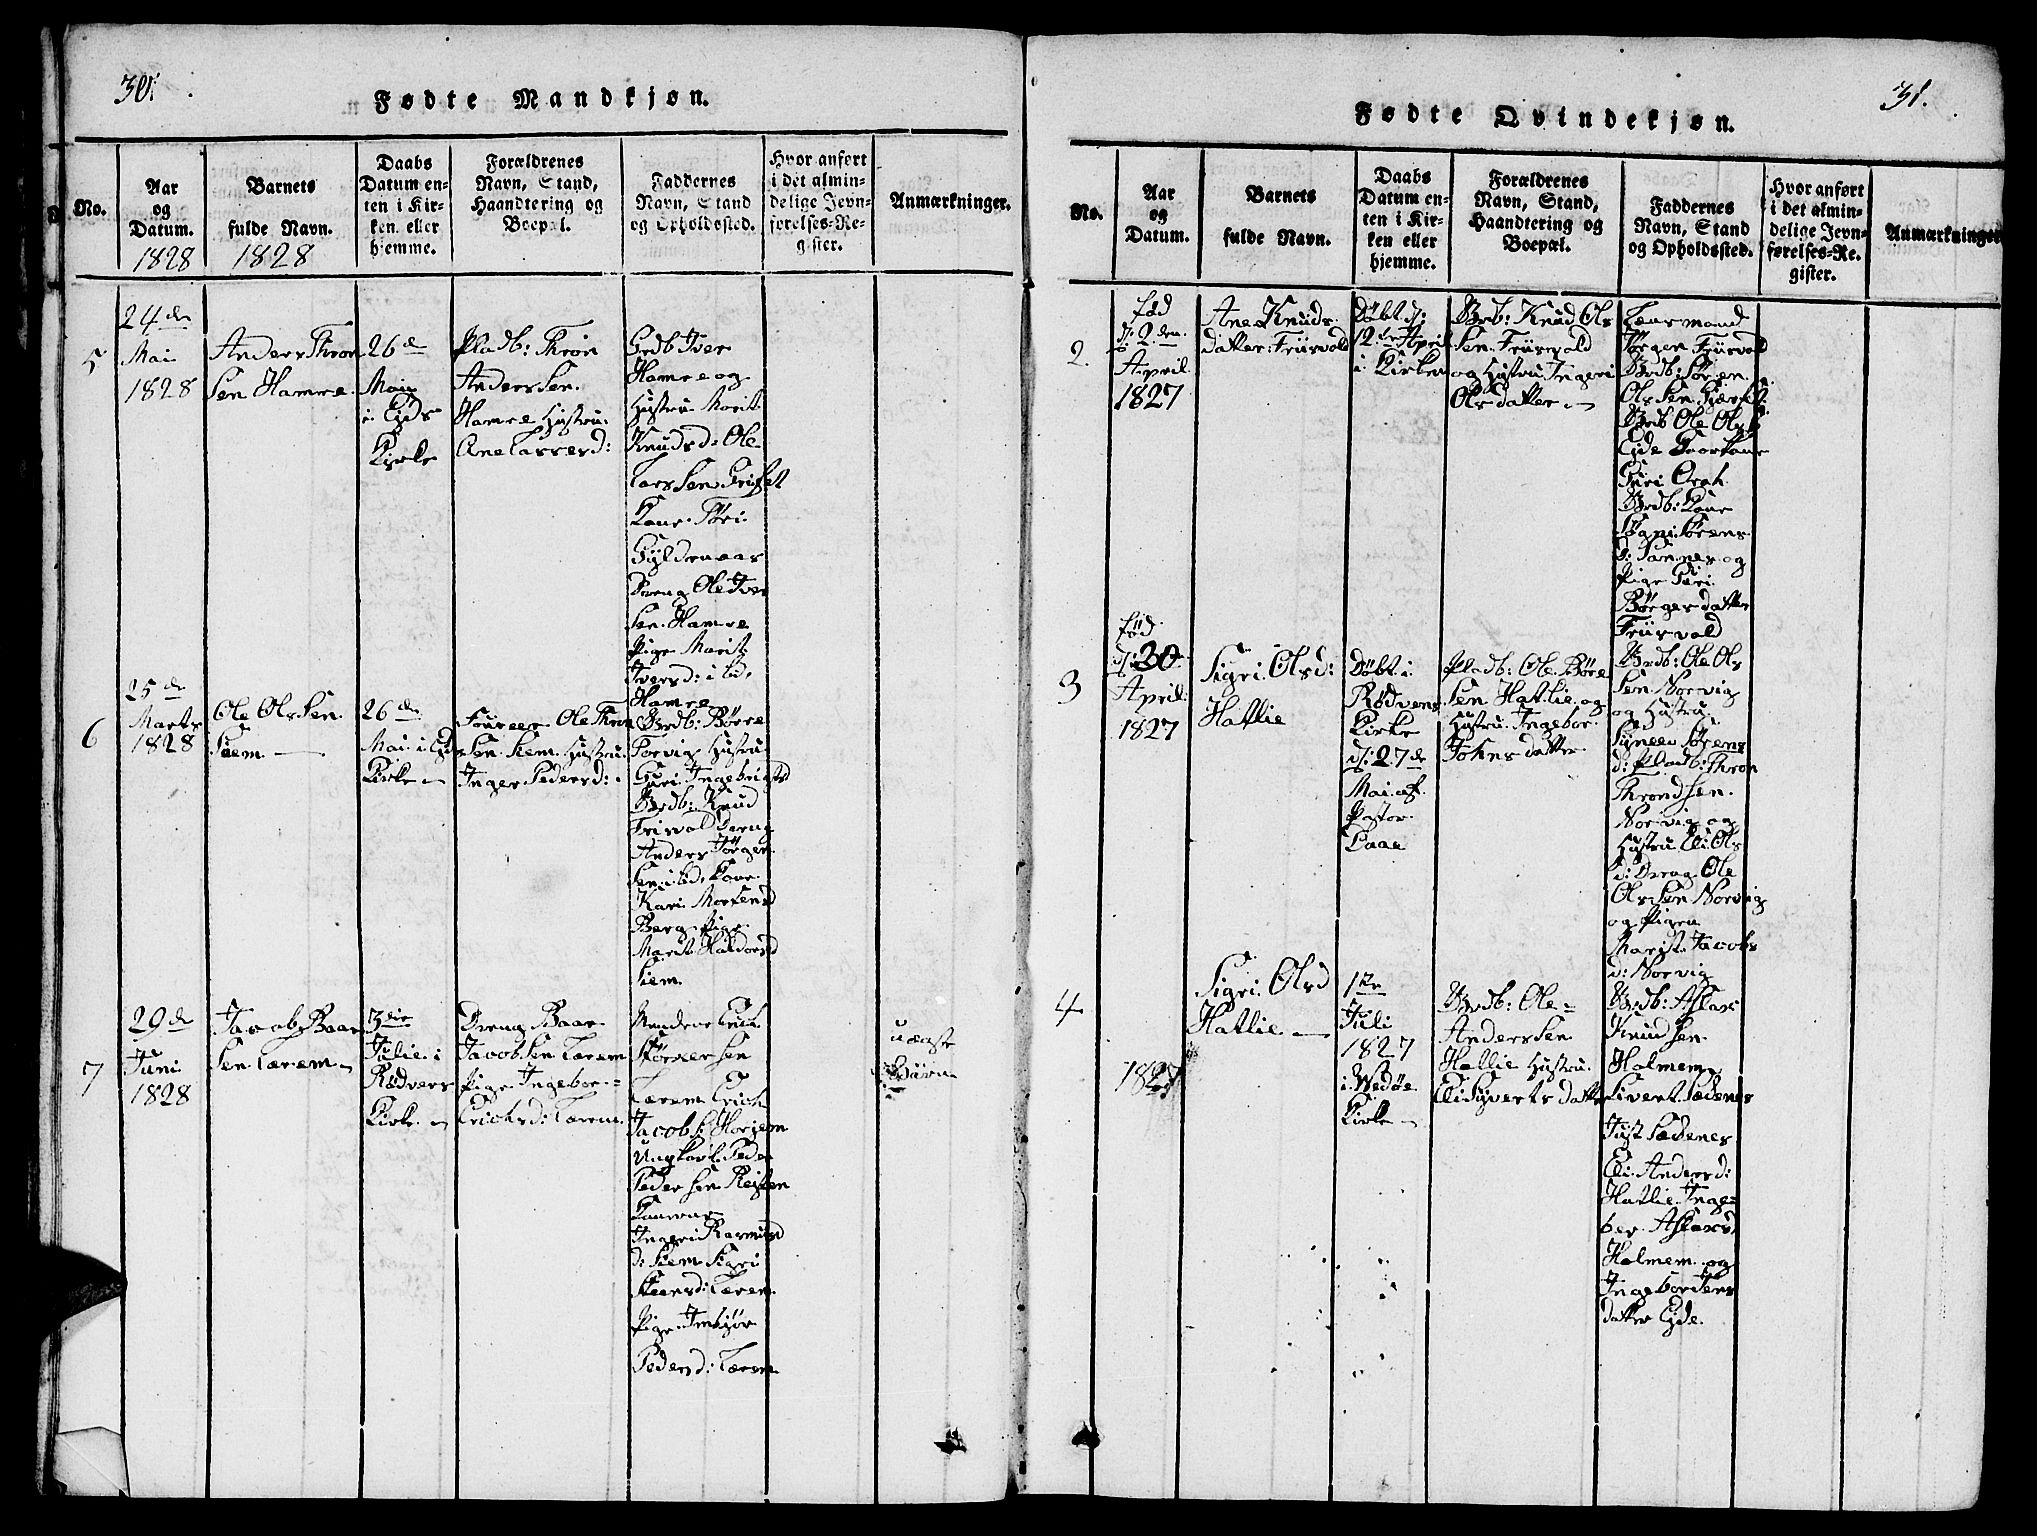 30.
Fødte Mandkjøn.
No.
Aar
og
Datum.
1828
Barnets
fulde Navn.
1828
Daabs
Datum en-
ten i Kir-
ken eller
hjemme.
Forældrenes
Navn, Stand,
Haandtering og
Boepæl.
Faddernes
Navn, Stand
og Opholdssted.
Hvor anført
i det almin-
delige Jevn-
førelses-Re-
gister.
Anmærkninger.
5
24de
Mai
1828
Anders Thron
Sen Hamre.
26de
Mai
i Eids
Kirke
Pladb: Thron
Anders Sen.
Hamre Hustru:
Ane Lassesd:
Grdb Iver
Hamre og
Hustru Marit
Knudsd: Ole
Lars Sen
Kone
Gyldenaas
Dreng Ole Iver
Sen. Hamre
Pige Marit
Iversd: ibd,
Hamre
6
25de
Marts
1828
Ole Ols Sen.
Siem. —
26de
Mai i Eids
Kirke
Ole Thron
Sen. Siem. Hustru.
Inger Pedersd:
Grdb: Børre
Torvig Hustru
Guri Ingebrigtsd
Grdb: Knud
Frisvold Dreng
Anders Jørgen
Sen. ibd, Kone
Kari Mortensd
Berg Pige
Marit Haldorsd
Siem.
7
29de
Juni
1828
Jacob Baar
Sen Lerem
3die
Julie i
Rødvens
Kirke
Dreng Baar
Jacob Sen Lerem
Pige Ingebor
Erichsd: Lerem.
Mændene Erich
Størker Sen
Lerem Erich
Jacobs: Horjem
Ungkarl Peder
Peder Sen Reisten
Konerne
Ingeri Rasmusd
d: Siem Sigri
Steensd: Lerem
Pige Imbjør
Pedersd: Lerem
uægte
Børn
31.
Fødte Qvindekjøn.
No.
Aar
og
Datum.
Barnets
fulde Navn.
Daabs
Datum en-
ten i Kir-
ken eller
hjemme.
Forældrenes
Navn, Stand,
Haandtering og
Boepæl.
Faddernes
Navn, Stand
og Opholdssted.
Hvor anført
i det almin-
delige Jevn-
førelses-Re-
gister.
Anmærkninger
2
fød
d: 2den
April
1827
Ane Knuds
datter: Friisvold
Døbt d:
12de April
i Kirken
Grdb: Knud Ols
Sen. Friisvold
og Hustru Ingeri
Olsdatter
Lensmand
Jørgen Friisvold
Grdb: Søren
Ols Sen
Grdb Ole Ols
Eide
Guri
Grdb: Kone
Sørens
d: og
Pige Guri
Børgesdatter
Friisvold
3
fød
d: 30
April
1827
Sigri Olsd:
Hatlie
Døbt i
Rødvens
Kirke
d: 27de
Mai af
Pastor
Daae
Pladb: Ole Børe
Sen Hatlie og
Hustru Ingebor
Johnsdatter
Grdb: Ole Ols
Sen Norvig
og Hustru
Synnev Sørens
d: Pladb: Thron
Thrond Sen
Norvig og
Hustru Eli Ols
d: Dreng Ole
Ols Sen Norvig
og Pigen
Marit Jacobs
d: Norvig
4
1827
Sigri Olsd
Hatlie —
1te
Juli
1827
i Wedøe
Kirke
Grdb: Ole
Anders Sen
Hatlie Hustru
Eli Syvertsdatter
Grdb: Aslak
Knud Sen.
Holmem
Sivert Sædenes
Just Sædenes
Eli Andersd:
Hatlie Inge-
bor Aslaksd
Holmem og
Ingebor Jens
datter Eide.